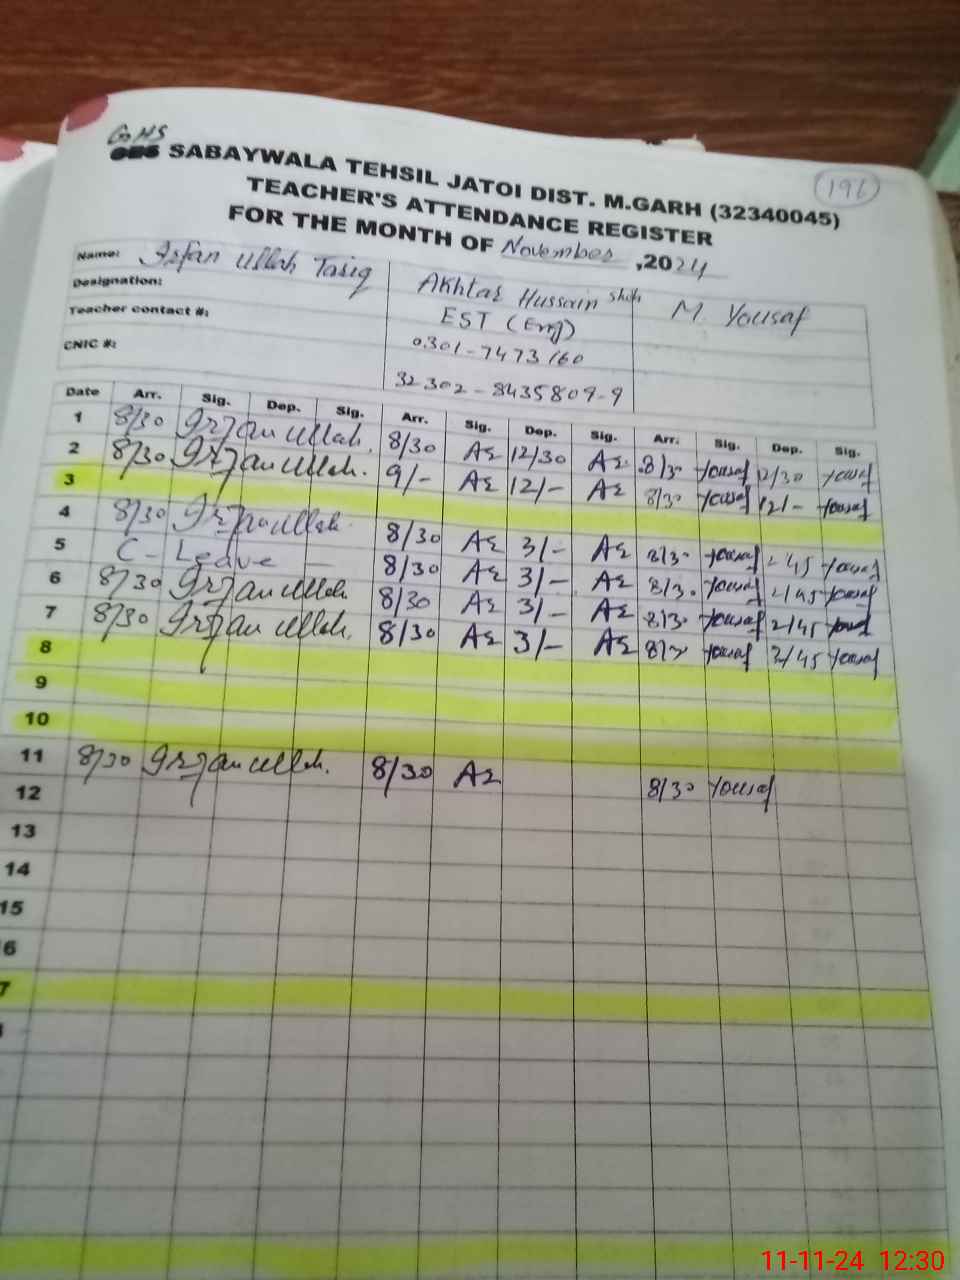 GHS
SABAYWALA TEHSIL JATOI DIST. M.GARH (32340045)
196
TEACHER'S ATTENDANCE REGISTER
FOR THE MONTH OF November ,2024
Name: Irfan Ullah Tariq Akhtar Hussain M. Yousaf
Designation: EST (Eng)
Teacher contact #: 0301-7473160
CNIC #: 32302-8435809-9
Date Arr. Sig. Dep. Sig. Arr. Sig. Dep. Sig. Arr. Sig. Dep. Sig.
1 8/30 Irfan ullah. 8/30 AS 12/30 AS 8/30 Yousaf 12/30 Yousaf
2 8/30 Irfan ullah. 9/- AS 12/- AS 8/30 Yousaf 12/- Yousaf
3
4 8/30 Irfan ullah. 8/30 AS 3/- AS 8/30 Yousaf 2/45 Yousaf
5 C-Leave 8/30 AS 3/- AS 8/30 Yousaf 2/45 Yousaf
6 8/30 Irfan ullah 8/30 AS 3/- AS 8/30 Yousaf 2/45 Yousaf
7 8/30 Irfan ullah. 8/30 AS 3/- AS 8/30 Yousaf 2/45 Yousaf
8
9
10
11 8/30 Irfan ullah. 8/30 AS 8/30 Yousaf
12
13
14
15
6
7
11-11-24 12:30